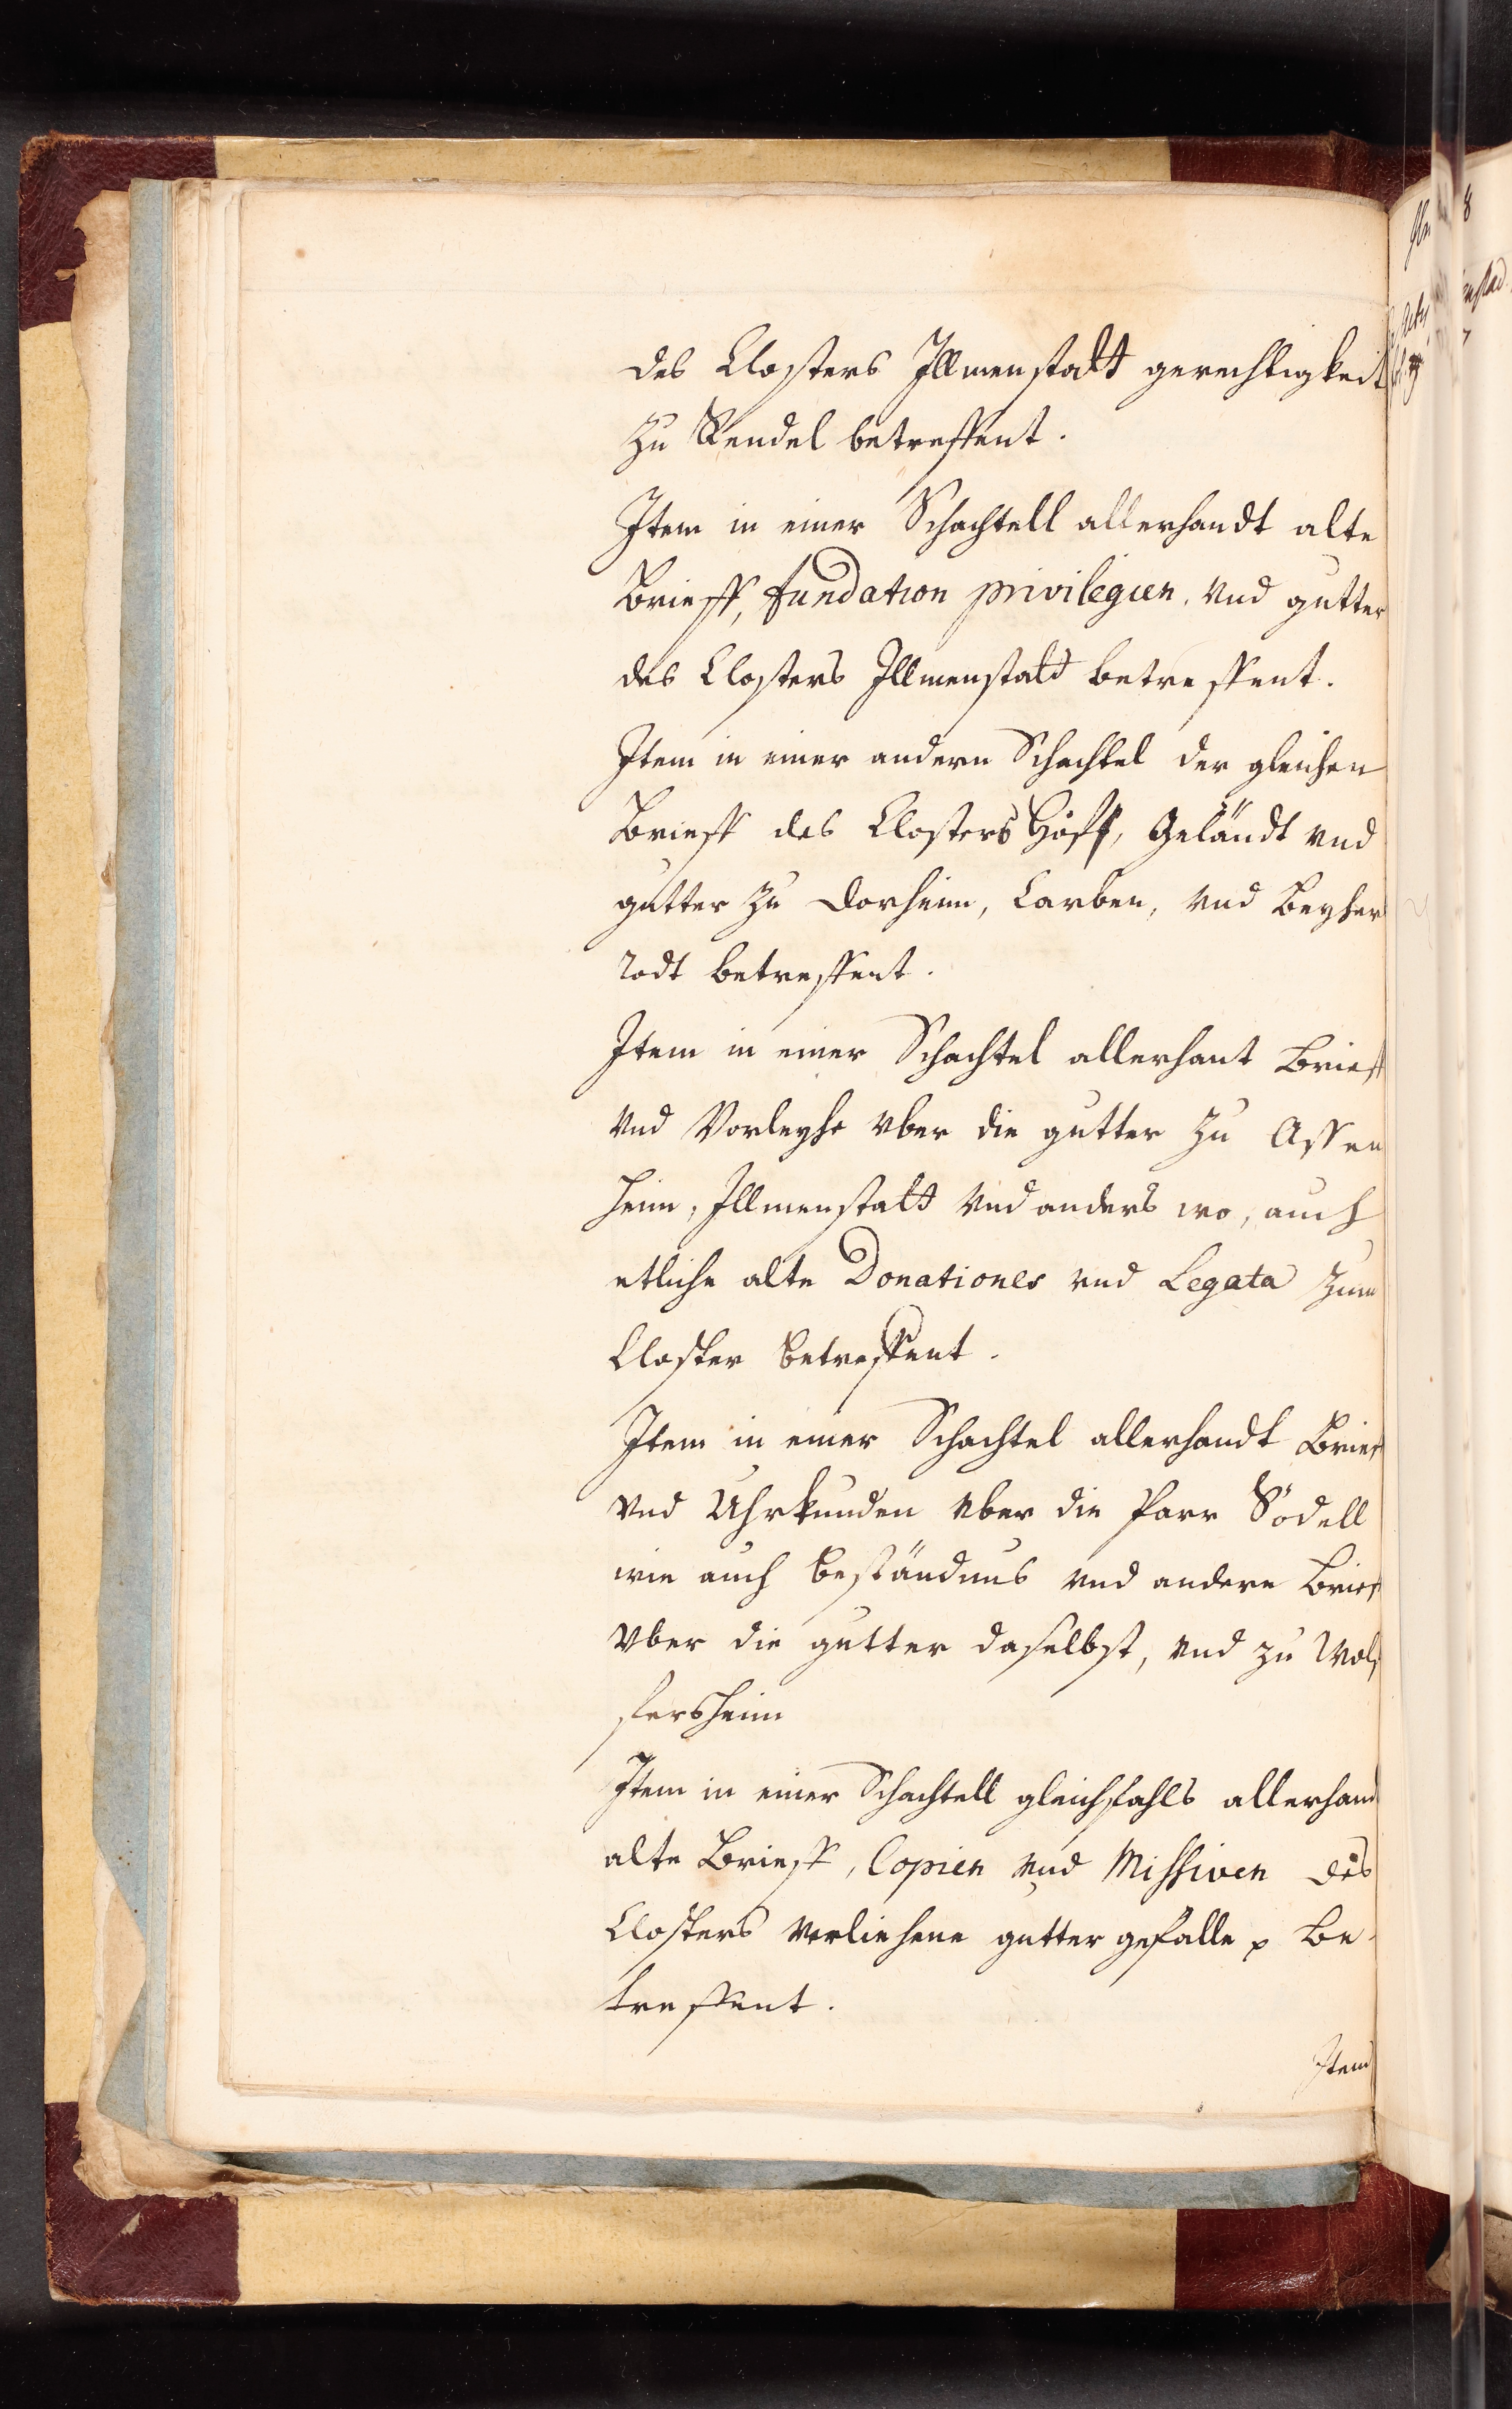 des Closters Illmenstatt gerechtigkeit
zu Rendel betreffent.
Item in einer Schachtell allerhandt alte
Brieff, fundation privilegien, vnd gutter
des Closters Illmenstatt betreffent.
Item in einer andern Schachtel der gleichen
Brieff des Closters Höff, Geländt vnd
gutter zu Dorheim, Carben, vnd Beyher
rodt betreffent.
Item in einer Schachtel allerhant Brieff
vnd Vorleyhe vber die gutter zu Assen
heim, Illmenstatt vnd anders wo, auch
etliche alte Donationes vnd Legata zum
Closter betreffent.
Item in einer Schachtel allerhandt Brief
vnd Uhrkunden vber die Parr Södell
wie auch beständnus vnd andere Brief
vber die gutter daselbst, vnd zu Wolf
fersheim
Item in einer Schachtell gleichfahls allerhand
alte Brieff, Copien vnd Missiven des
Closters verliehene gutter gefälle p be
treffent.
Item